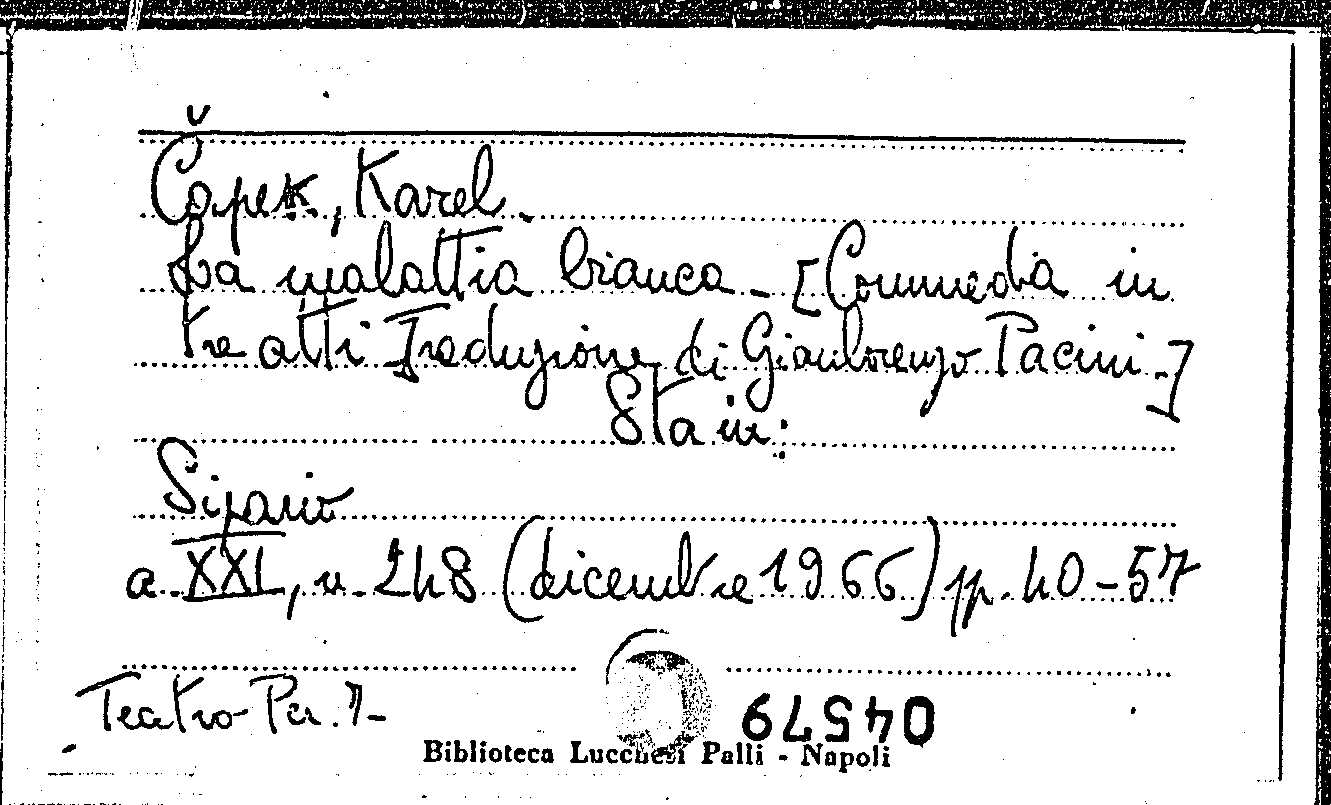 Čapek, Karel.
La malattia bianca - [Commedia in
tre atti Traduzione di Gianlorenzo Pacini.]
Sta in:
Sipario
a. XXI, n. 248 (dicembre 1966) pp. 40-57
Teatro-Per. 7-
04579
Biblioteca Lucchesi Palli - Napoli